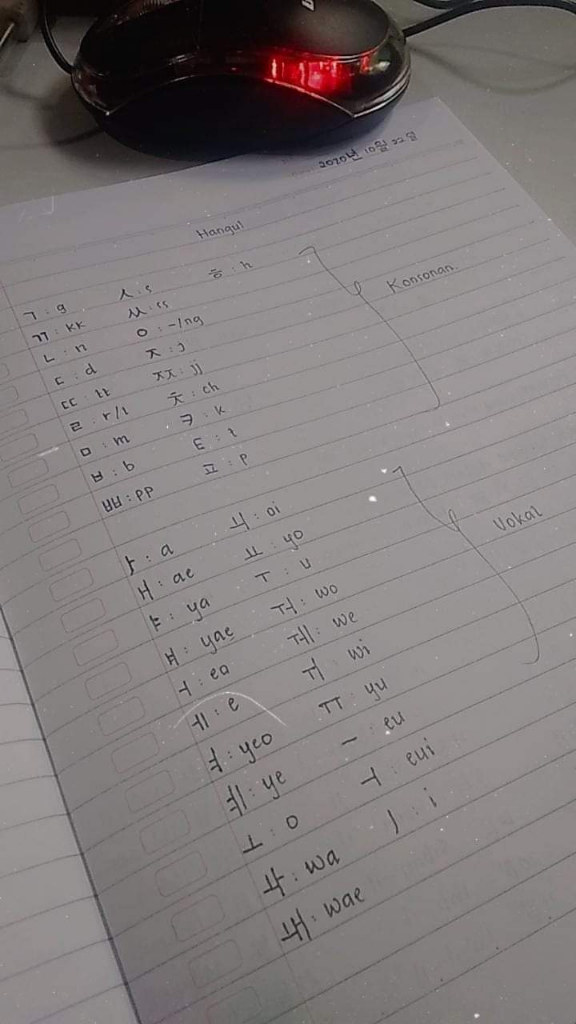 2020년 10월 22일
Hangul
ㄱ : g ㅅ : s ㅎ : h
ㄲ : kk ㅆ : ss
ㄴ : n ㅇ : -/ng
ㄷ : d ㅈ : j
ㄸ : tt ㅉ : jj
ㄹ : r/l ㅊ : ch
ㅁ : m ㅋ : k
ㅂ : b ㅌ : t
ㅃ : pp ㅍ : p
Konsonan
ㅏ : a ㅚ : oi
ㅐ : ae ㅛ : yo
ㅑ : ya ㅜ : u
ㅒ : yae ㅝ : wo
ㅓ : eo ㅞ : we
ㅔ : e ㅟ wi
ㅕ : yeo ㅠ : yu
ㅖ : ye ㅡ : eu
ㅗ : o ㅢ : eui
ㅘ : wa ㅣ : i
ㅙ : wae
Vokal